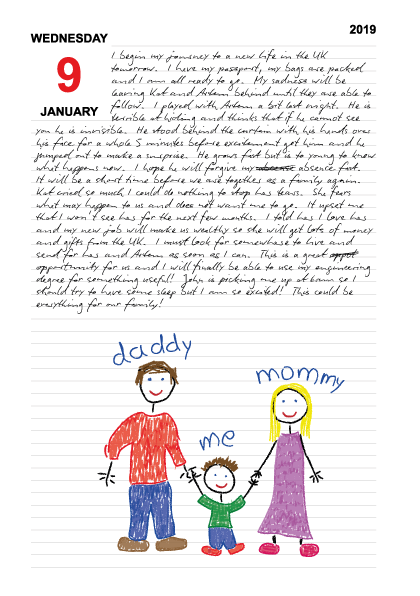 2019
WEDNESDAY
9
JANUARY
I begin my journey to a new life in the UK
tomorrow. I have my passport, my bags are packed
and I am all ready to go. My sadness will be
leaving Kat and Artem behind until they are able to
follow. I played with Artem a bit last night. He is
terrible at hiding and thinks that if he cannot see
you he is invisible. He stood behind the curtain with his hands over
his face for a whole 5 minutes before excitement got him and he
jumped out to make a surprise. He grows fast but is to young to know
what happens now. I hope he will forgive my absence fast.
It will be a short time before we are together as a family again.
Kat cried so much I could do nothing to stop has tears. She fears
what may happen to us and does not want me to go. It upset me
that I won't see has for the next few months. I told has I love has
and my new job will make us wealthy so she will get lots of money
and gifts from the UK. I must look for somewhere to live and
send for has and Artem as soon as I can. This is a great oppot
opportunity for us and I will finally be able to use my engineering
degree for something useful! John is picking me up at 6am so I
should try to have some sleep but I am so excited! This could be
everything for our family!
daddy
mommy
me